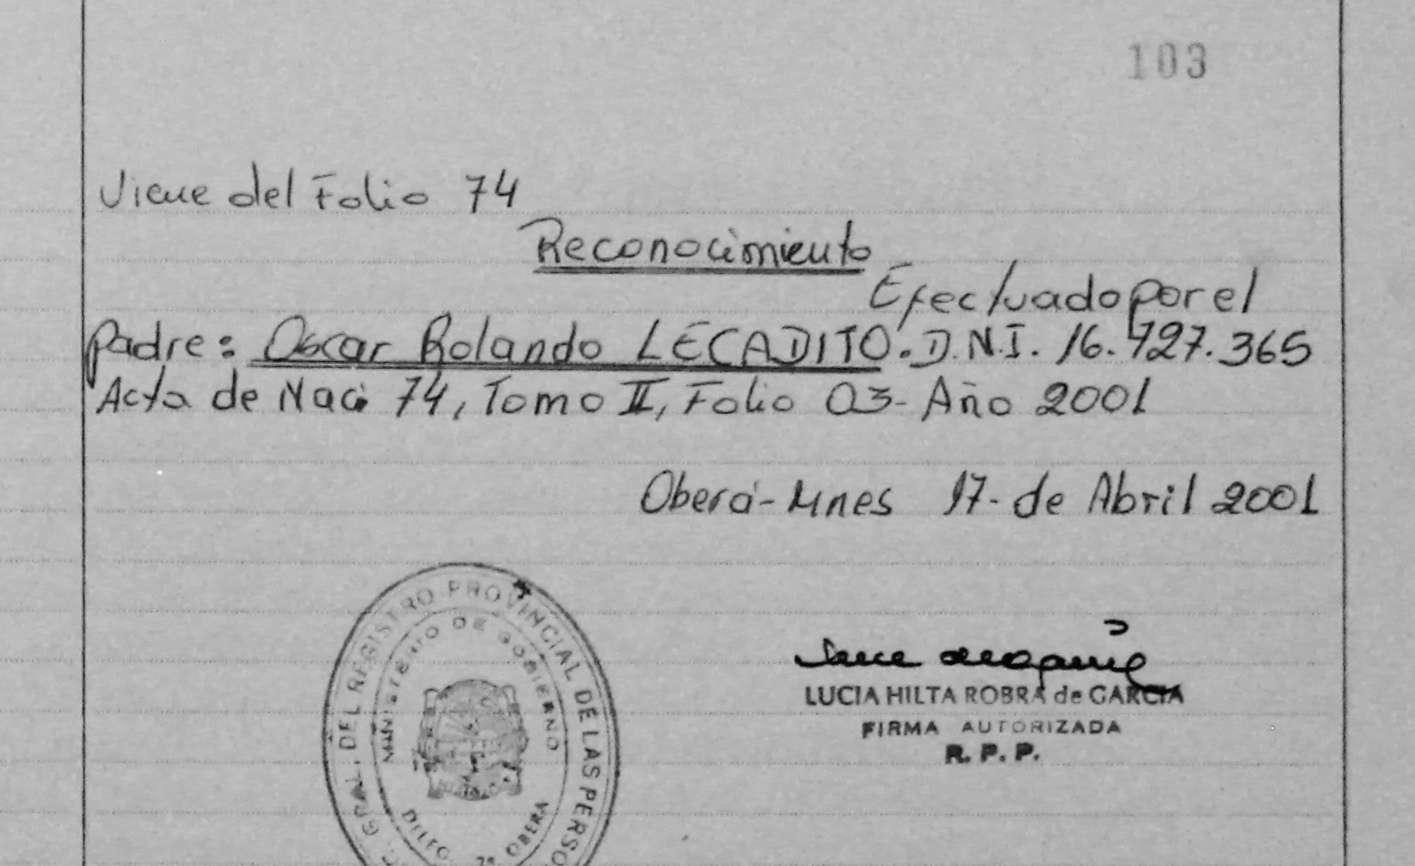 103
Viene del Folio 74
Reconocimiento
Efectuado por el
padre: Oscar Rolando LECADITO. D.N.I. 16.727.365
Acta de Nac: 74, Tomo II, Folio 03- Año 2001
Oberá-Mnes 17- de Abril 2001
GRAL. DEL REGISTRO PROVINCIAL DE LAS PERSO
MINISTERIO DE GOBIERNO
DELEG. 7ª OBERA
LUCIA HILTA ROBRA de GARCIA
FIRMA AUTORIZADA
R. P. P.